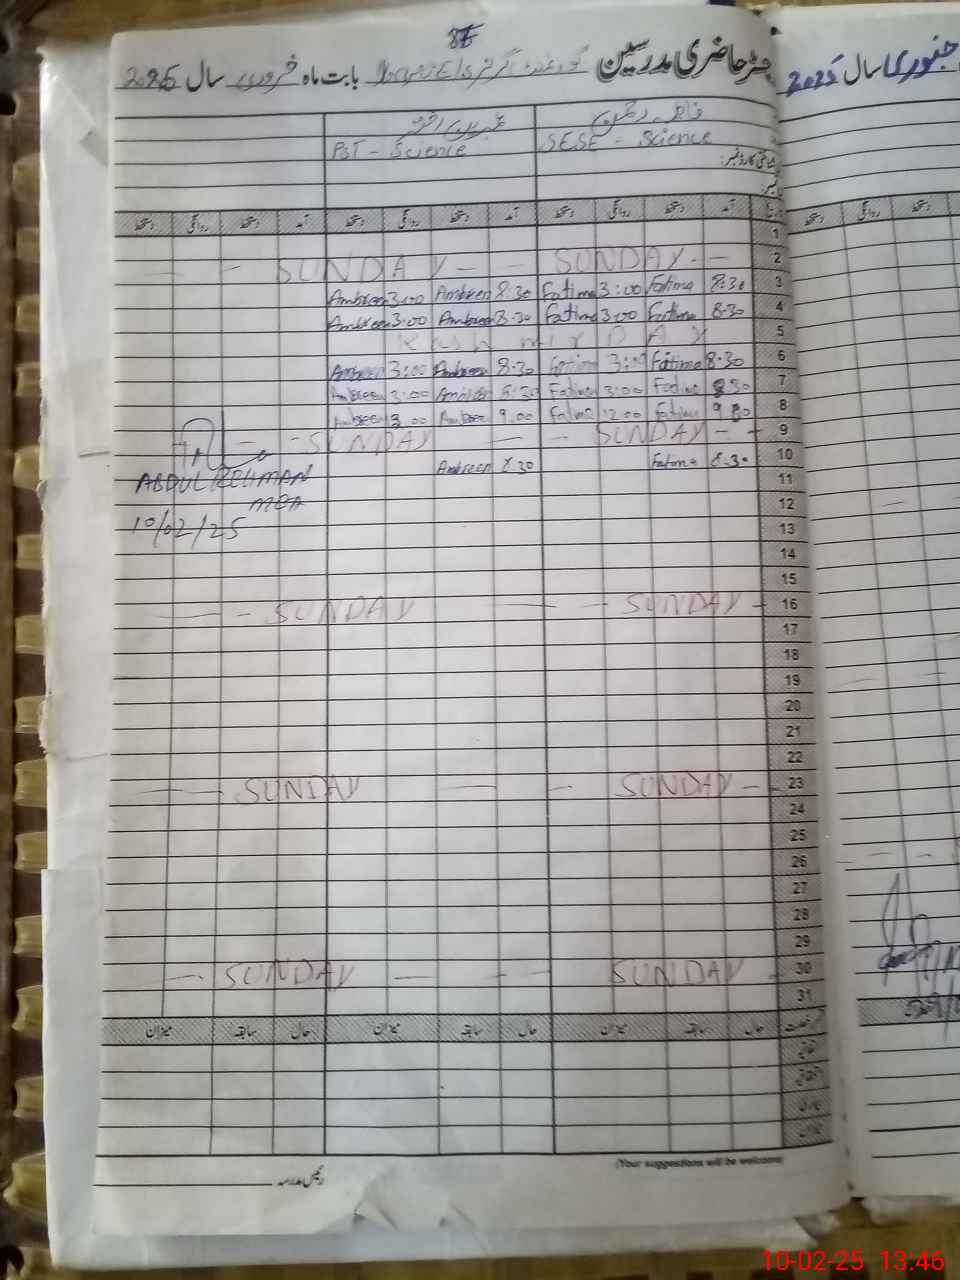 رجسٹر حاضری مدرسین گورنمنٹ گرلز بابت ماہ فروری سال 2025
جنوری سال 2025
فاطمہ
SESE - Science
PST - Science
آمد دستخط روانگی دستخط آمد دستخط روانگی دستخط آمد دستخط روانگی دستخط
دستخط روانگی دستخط
1
2 SUNDAY SUNDAY
3 8:30 Fatima 3:00 Fatima 8:30 Ambreen 3:00 Ambreen
4 8:30 Fatima 3:00 Fatima 8:30 Ambreen 3:00 Ambreen
5 Kashmir DAY
6 8:30 Fatima 3:00 Fatima 8:30 Ambreen 3:00 Ambreen
7 8:30 Fatima 3:00 Fatima 8:30 Ambreen 3:00 Ambreen
8 Fatima 12.00 Fatima 9.00 Ambreen 3.00 Ambreen
9 SUNDAY SUNDAY
10 8:30 Fatima 8:30 Ambreen
ABDUL REHMAN
MEA
10/02/25
11
12
13
14
15
16 SUNDAY SUNDAY
17
18
19
20
21
22
23 SUNDAY SUNDAY
24
25
26
27
28
29
30 SUNDAY SUNDAY
31
حال سابقہ میزان حال سابقہ میزان حال سابقہ میزان
اتفاقیہ
میزان
(Your suggestions will be welcome)
رئیس مدرسہ
10-02-25 13:46